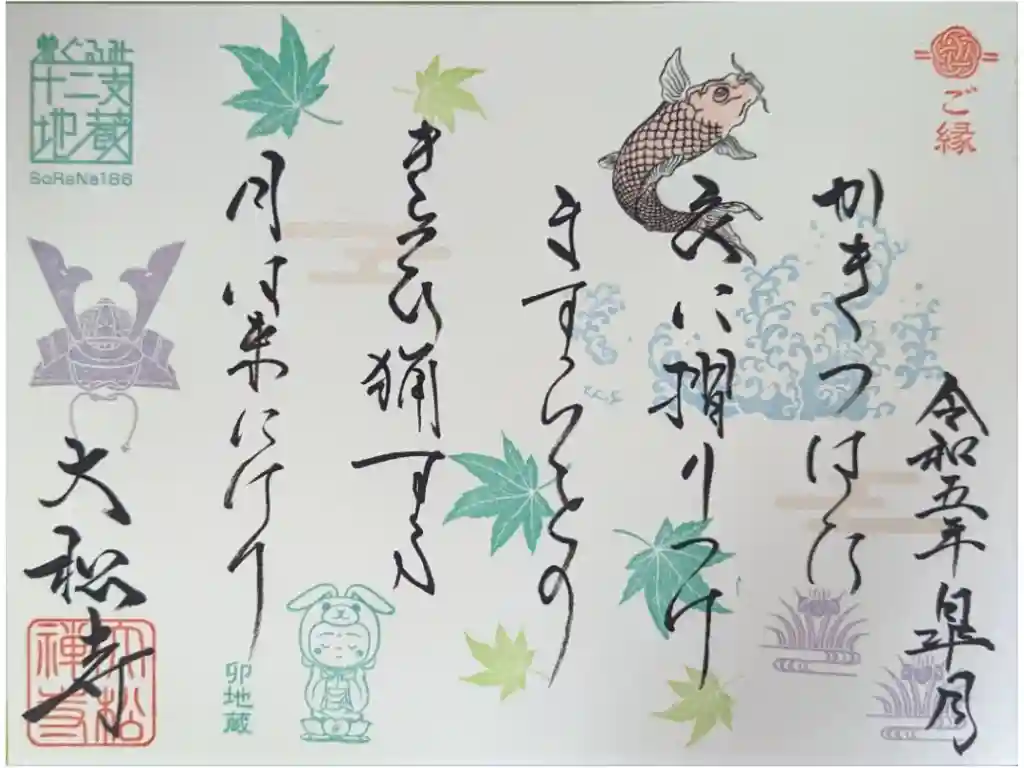 ご縁
令和五年 皐月
かきつはた
衣に摺りつけ
ますらをの
きそひ猟する
月は来にけり
大松寺
大松
禅寺
卯地蔵
着ぐるみ
十二支
地蔵